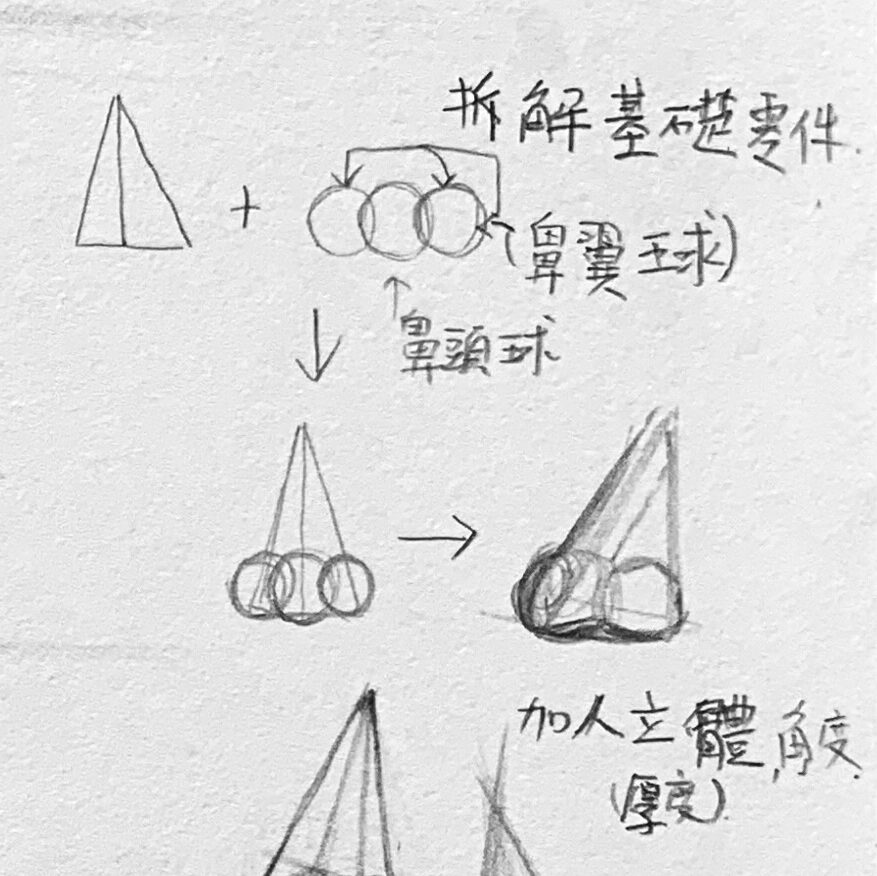 拆解基礎零件.
(鼻翼球)
鼻頭球
加入立體,角度
(厚度)